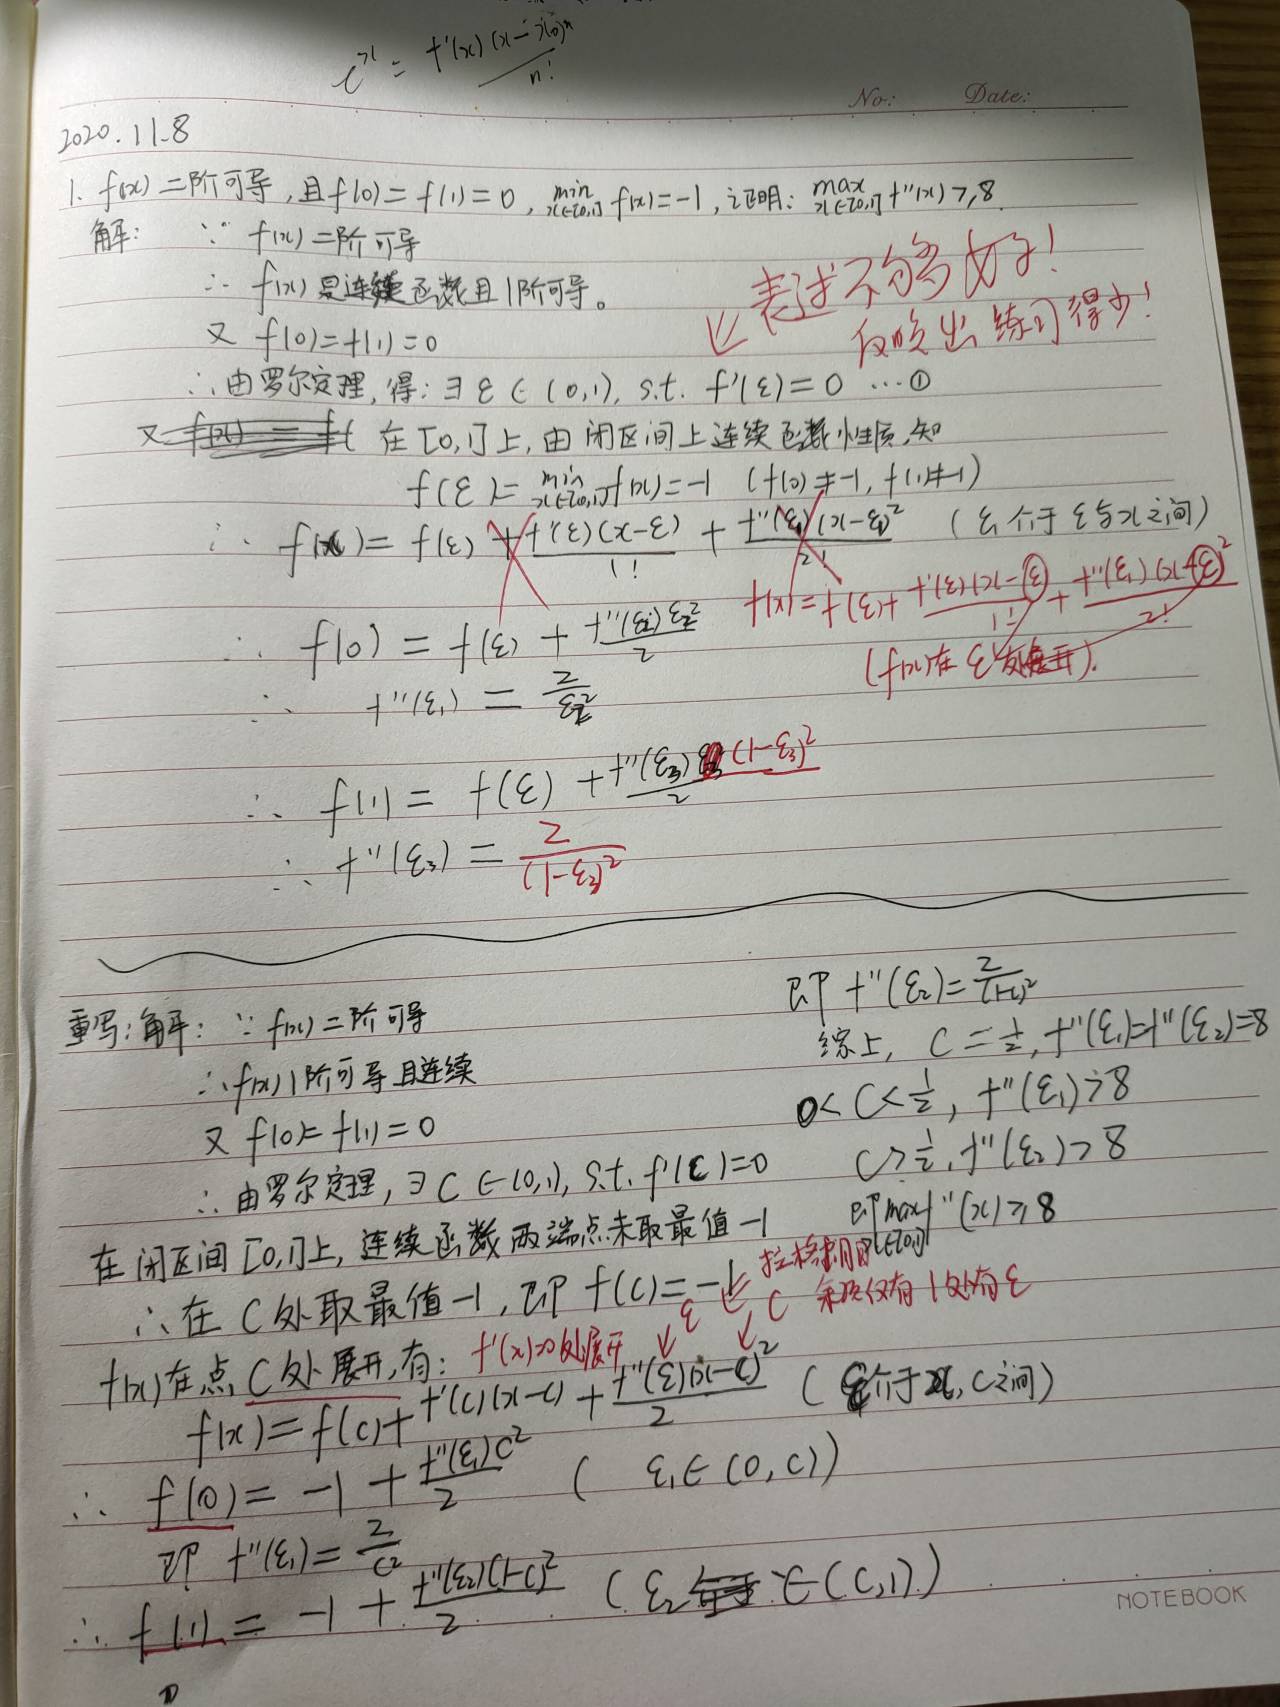 e^x = f'(x)(x-x0)^n / n!
No: Date:
2020.11.8
1. f(x)二阶可导,且f(0)=f(1)=0, min x∈[0,1] f(x)=-1,证明: max x∈[0,1] f''(x)≥8.
解: ∵ f(x)二阶可导
∴ f(x)是连续函数且1阶可导。
表述不够好!
又 f(0)=f(1)=0
反映出练习得少!
∴由罗尔定理,得:∃ε∈(0,1), s.t. f'(ε)=0 …①
又 在[0,1]上,由闭区间上连续函数性质,知
f(ε)= min x∈[0,1] f(x)=-1 (f(0)≠-1, f(1)≠-1)
∴ f(x)= f(ε) + f'(ε)(x-ε)/1! + f''(ε1)(x-ε)^2/2! (ε1介于ε与x之间)
f(x)=f(ε)+ f'(ε)(x-ε)/1! + f''(ε1)(x-ε)^2/2!
∴ f(0) = f(ε) + f''(ε2)ε2^2/2
(f(x)在ε处展开).
∴ f''(ε1) = 2/ε2^2
∴ f(1) = f(ε) + f''(ε3)(1-ε3)^2/2
∴ f''(ε3) = 2/(1-ε3)^2
重写:解: ∵ f(x)二阶可导
∴ f(x)1阶可导且连续
又 f(0)=f(1)=0
∴由罗尔定理,∃C∈(0,1), s.t. f'(C)=0
在闭区间[0,1]上,连续函数两端点未取最值-1
∴在C处取最值-1,即 f(C)=-1
f(x)在点C处展开,有: f'(x)=0处展开
ε C
f(x)=f(c)+f'(c)(x-c)+ f''(ε)(x-c)^2/2 (ε介于x,C之间)
∴ f(0)= -1 + f''(ε1)C^2/2 ( ε1∈(0,C))
即 f''(ε1)= 2/C^2
∴ f(1) = -1 + f''(ε2)(1-C)^2/2 (ε2 ∈(C,1))
即 f''(ε2)= 2/(1-C)^2
综上, C=1/2, f''(ε1)=f''(ε2)=8
0<C<1/2, f''(ε1)>8
C>1/2, f''(ε2)>8
即 max x∈[0,1] f''(x)≥8
拉格朗日
余项仅有1处有ε
NOTEBOOK